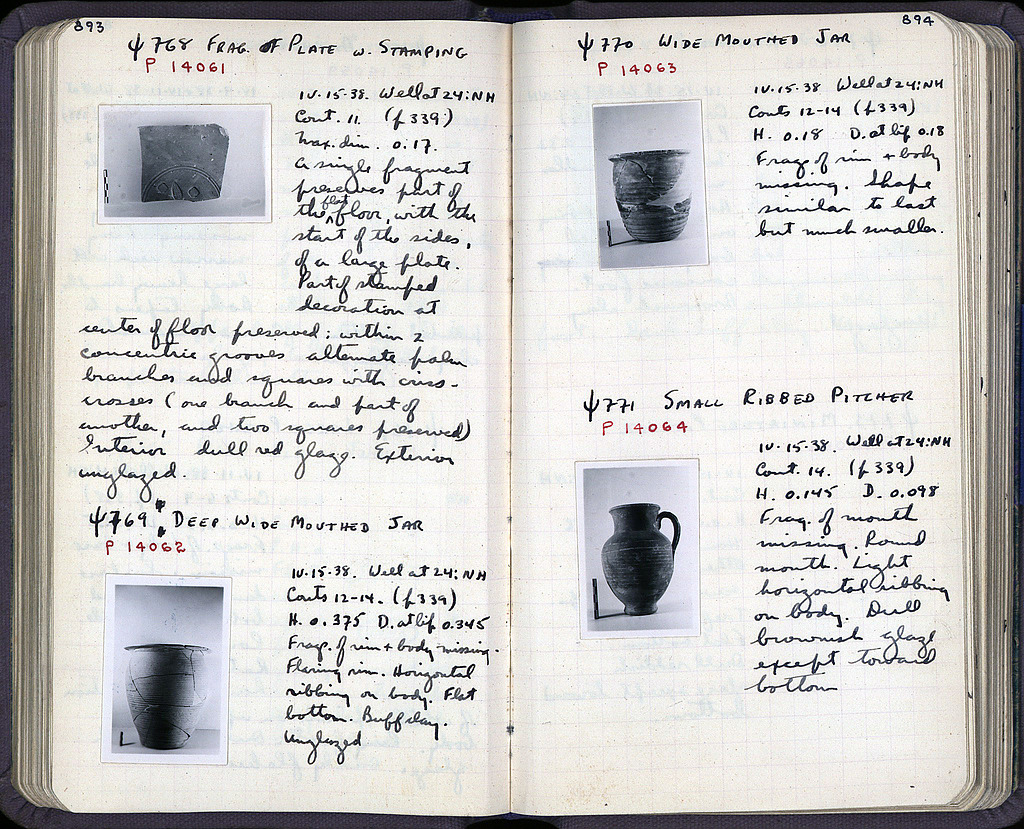 893
ψ 768 FRAG. OF PLATE W. STAMPING
P 14061
IV.15.38. Well at 24:NH
Cont. 11. (p 339)
Max. dim. 0.17.
A single fragment
preserves part of
the flat floor, with the
start of the sides,
of a large plate.
Part of stamped
decoration at
center of floor preserved: within 2
concentric grooves alternate palm
branches and squares with criss-
crosses (one branch and part of
another, and two squares preserved)
Interior dull red glaze. Exterior
unglazed.
ψ 769 : DEEP WIDE MOUTHED JAR
P 14062
IV.15.38. Well at 24:NH
Conts 12-14. (p 339)
H. 0.375 D. at lip 0.345
Frags. of rim + body missing.
Flaring rim. Horizontal
ribbing on body. Flat
bottom. Buff clay.
Unglazed
894
ψ 770 WIDE MOUTHED JAR
P 14063
IV.15.38 Well at 24:NH
Conts 12-14 (p 339)
H. 0.18 D. at lip 0.18
Frags. of rim + body
missing. Shape
similar to last
but much smaller.
ψ 771 SMALL RIBBED PITCHER
P 14064
IV.15.38. Well at 24:NH
Cont. 14. (p 339)
H. 0.145 D. 0.098
Frag. of mouth
missing. Round
mouth. Light
horizontal ribbing
on body. Dull
brownish glaze
except toward
bottom